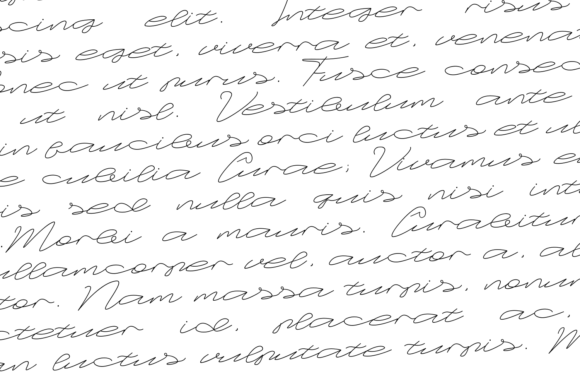 scing elit. Integer risus
sis eget, viverra et, venena
nec ut purus. Fusce consec
ut nisl. Vestibulum ante
in faucibus orci luctus et ul
e cubilia Curae; Vivamus e
is sed nulla quis nisi int
. Morbi a mauris. Curabitur
ullamcorper vel, auctor a, al
tor. Nam massa turpis, nonum
ctetuer id, placerat ac,
an luctus vulputate turpis. M